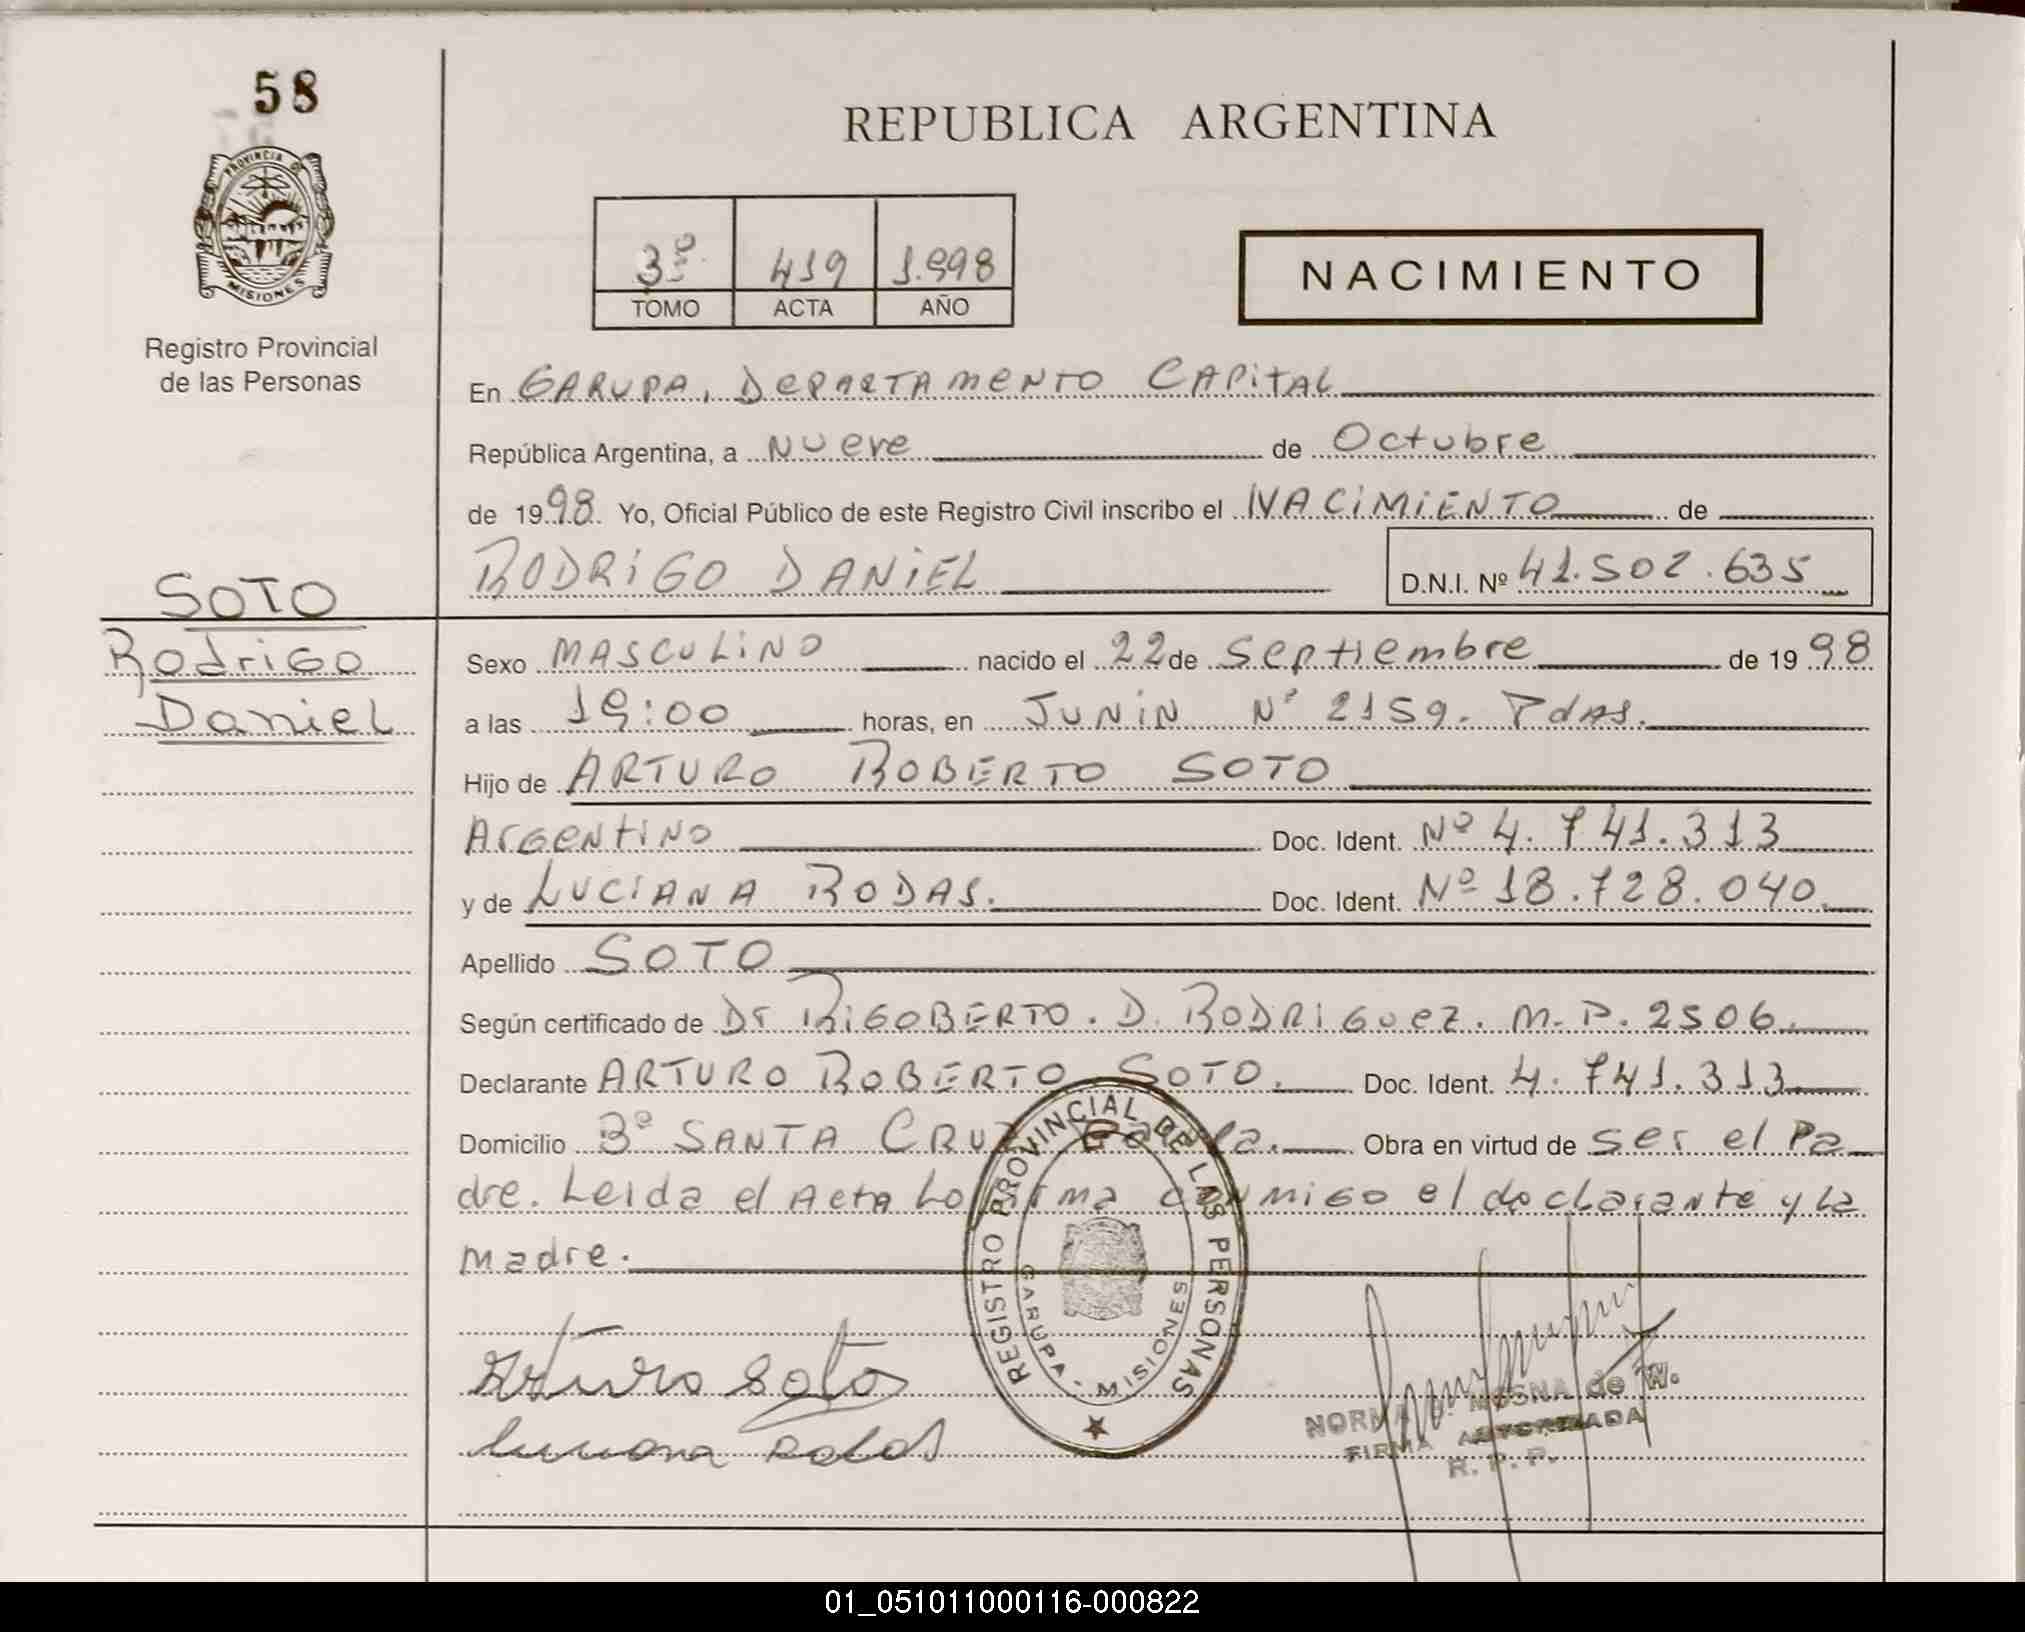 58
REPUBLICA ARGENTINA
PROVINCIA DE
MISIONES
Registro Provincial
de las Personas
3º 419 1.998
TOMO ACTA AÑO
NACIMIENTO
En GARUPA, DEPARTAMENTO CAPITAL
República Argentina, a Nueve de Octubre
de 1998. Yo, Oficial Público de este Registro Civil inscribo el NACIMIENTO de
RODRIGO DANIEL D.N.I. Nº 41.502.635
SOTO
Rodrigo
Daniel
Sexo MASCULINO nacido el 22 de Septiembre de 1998
a las 19:00 horas, en JUNIN Nº 2159. Pdas.
Hijo de ARTURO ROBERTO SOTO
Argentino Doc. Ident. Nº 4.741.313
y de LUCIANA RODAS. Doc. Ident. Nº 18.728.040.
Apellido SOTO
Según certificado de Dr RIGOBERTO. D. RODRIGUEZ. M.P. 2506.
Declarante ARTURO ROBERTO SOTO. Doc. Ident. 4.741.313
Domicilio Bº SANTA CRUZ Obra en virtud de ser el Pa
dre. Leida el Acta Lo conmigo el declarante y La
madre.
REGISTRO PROVINCIAL DE LAS PERSONAS
GARUPA - MISIONES
Arturo Soto
Luciana Rodas
NORMA MOSNA de W.
FIRMA AUTORIZADA
R. P. P.
01_051011000116-000822